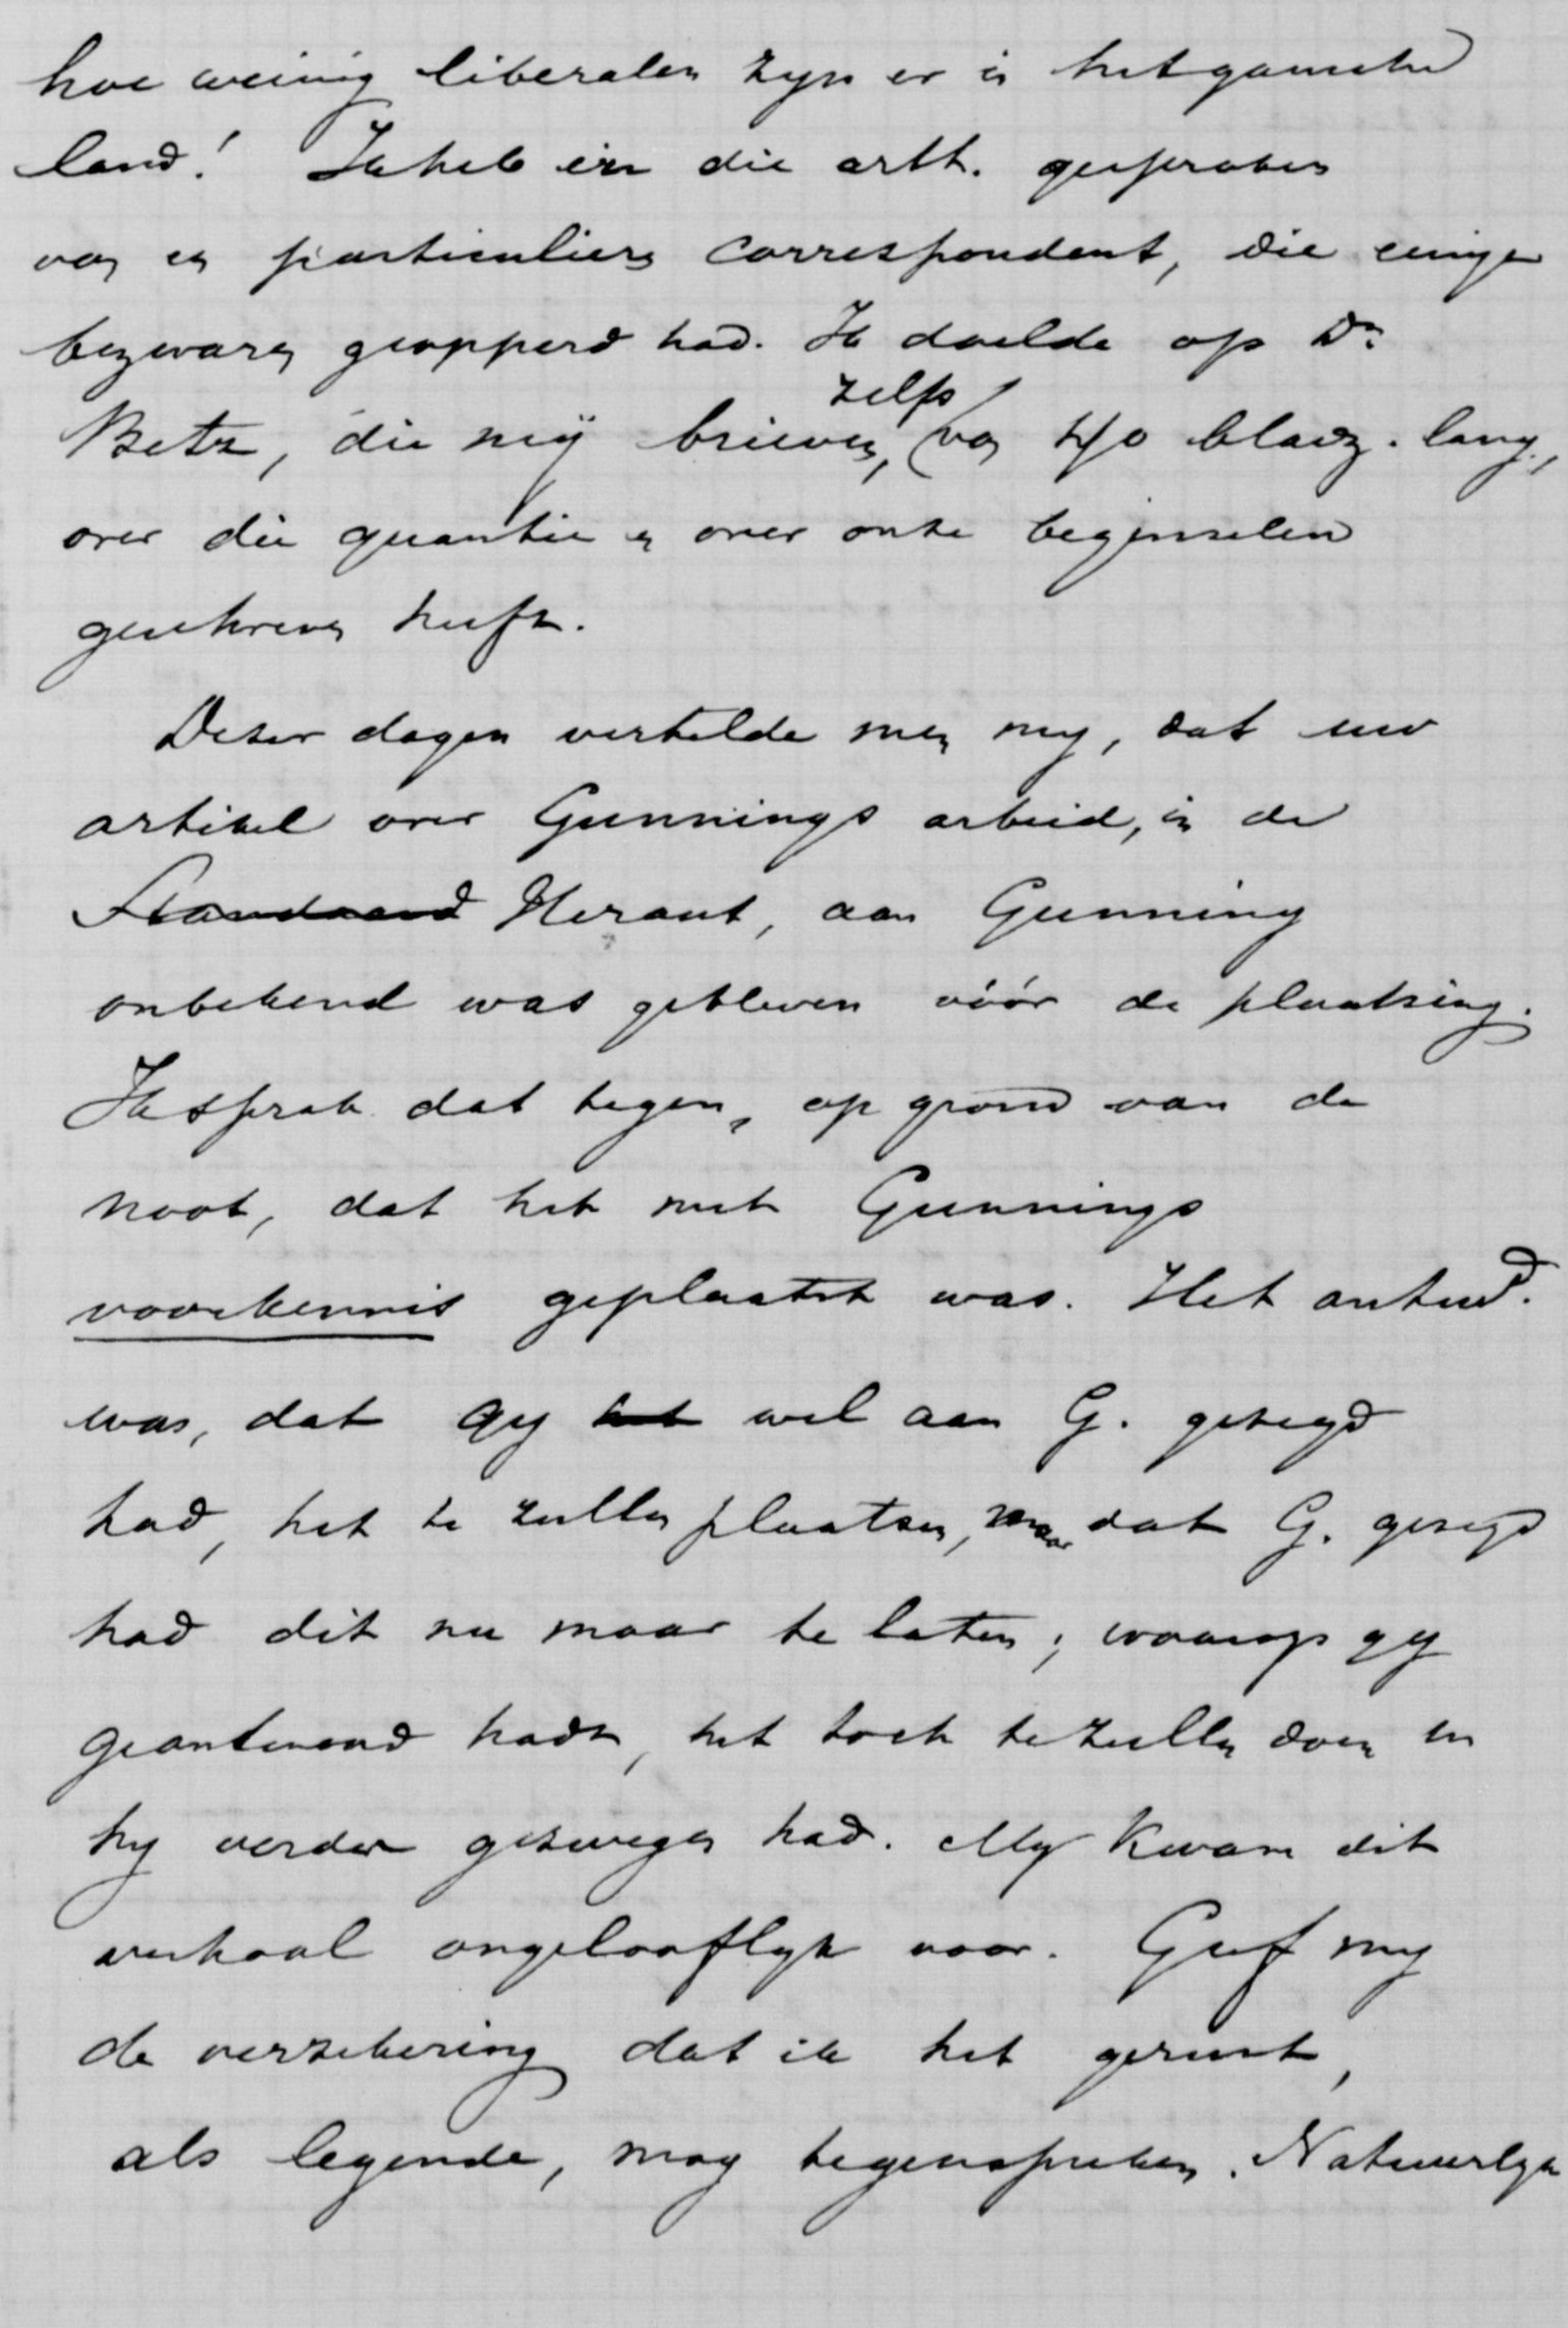 hoe weinig liberalen zyn er in het gansche
land! Ik heb in die artt. gesproken
van een particulieren correspondent, die eenige
bezwaren geopperd had. Ik doelde op Dr.
Betz, die mij brieven, zelfs van 40 bladz. lang,
over die quaestie en over onze beginselen
geschreven heeft.
Dezer dagen vertelde men my, dat uw
artikel over Gunnings arbeid, in de
Standaard Heraut, aan Gunning
onbekend was gebleven vóór de plaatsing.
Ik sprak dat tegen, op grond van de
noot, dat het met Gunnings
voorkennis geplaatst was. Het antwd.
was, dat gy het wel aan G. gezegd
had, het te zullen plaatsen, maar dat G. gezegd
had dit nu maar te laten; waarop gy
geantwoord hadt, het toch te zullen doen en
hy verder gezwegen had. My kwam dit
verhaal ongelooflyk voor. Geef my
de verzekering dat ik het gerust,
als legende, mag tegenspreken. Natuurlyk